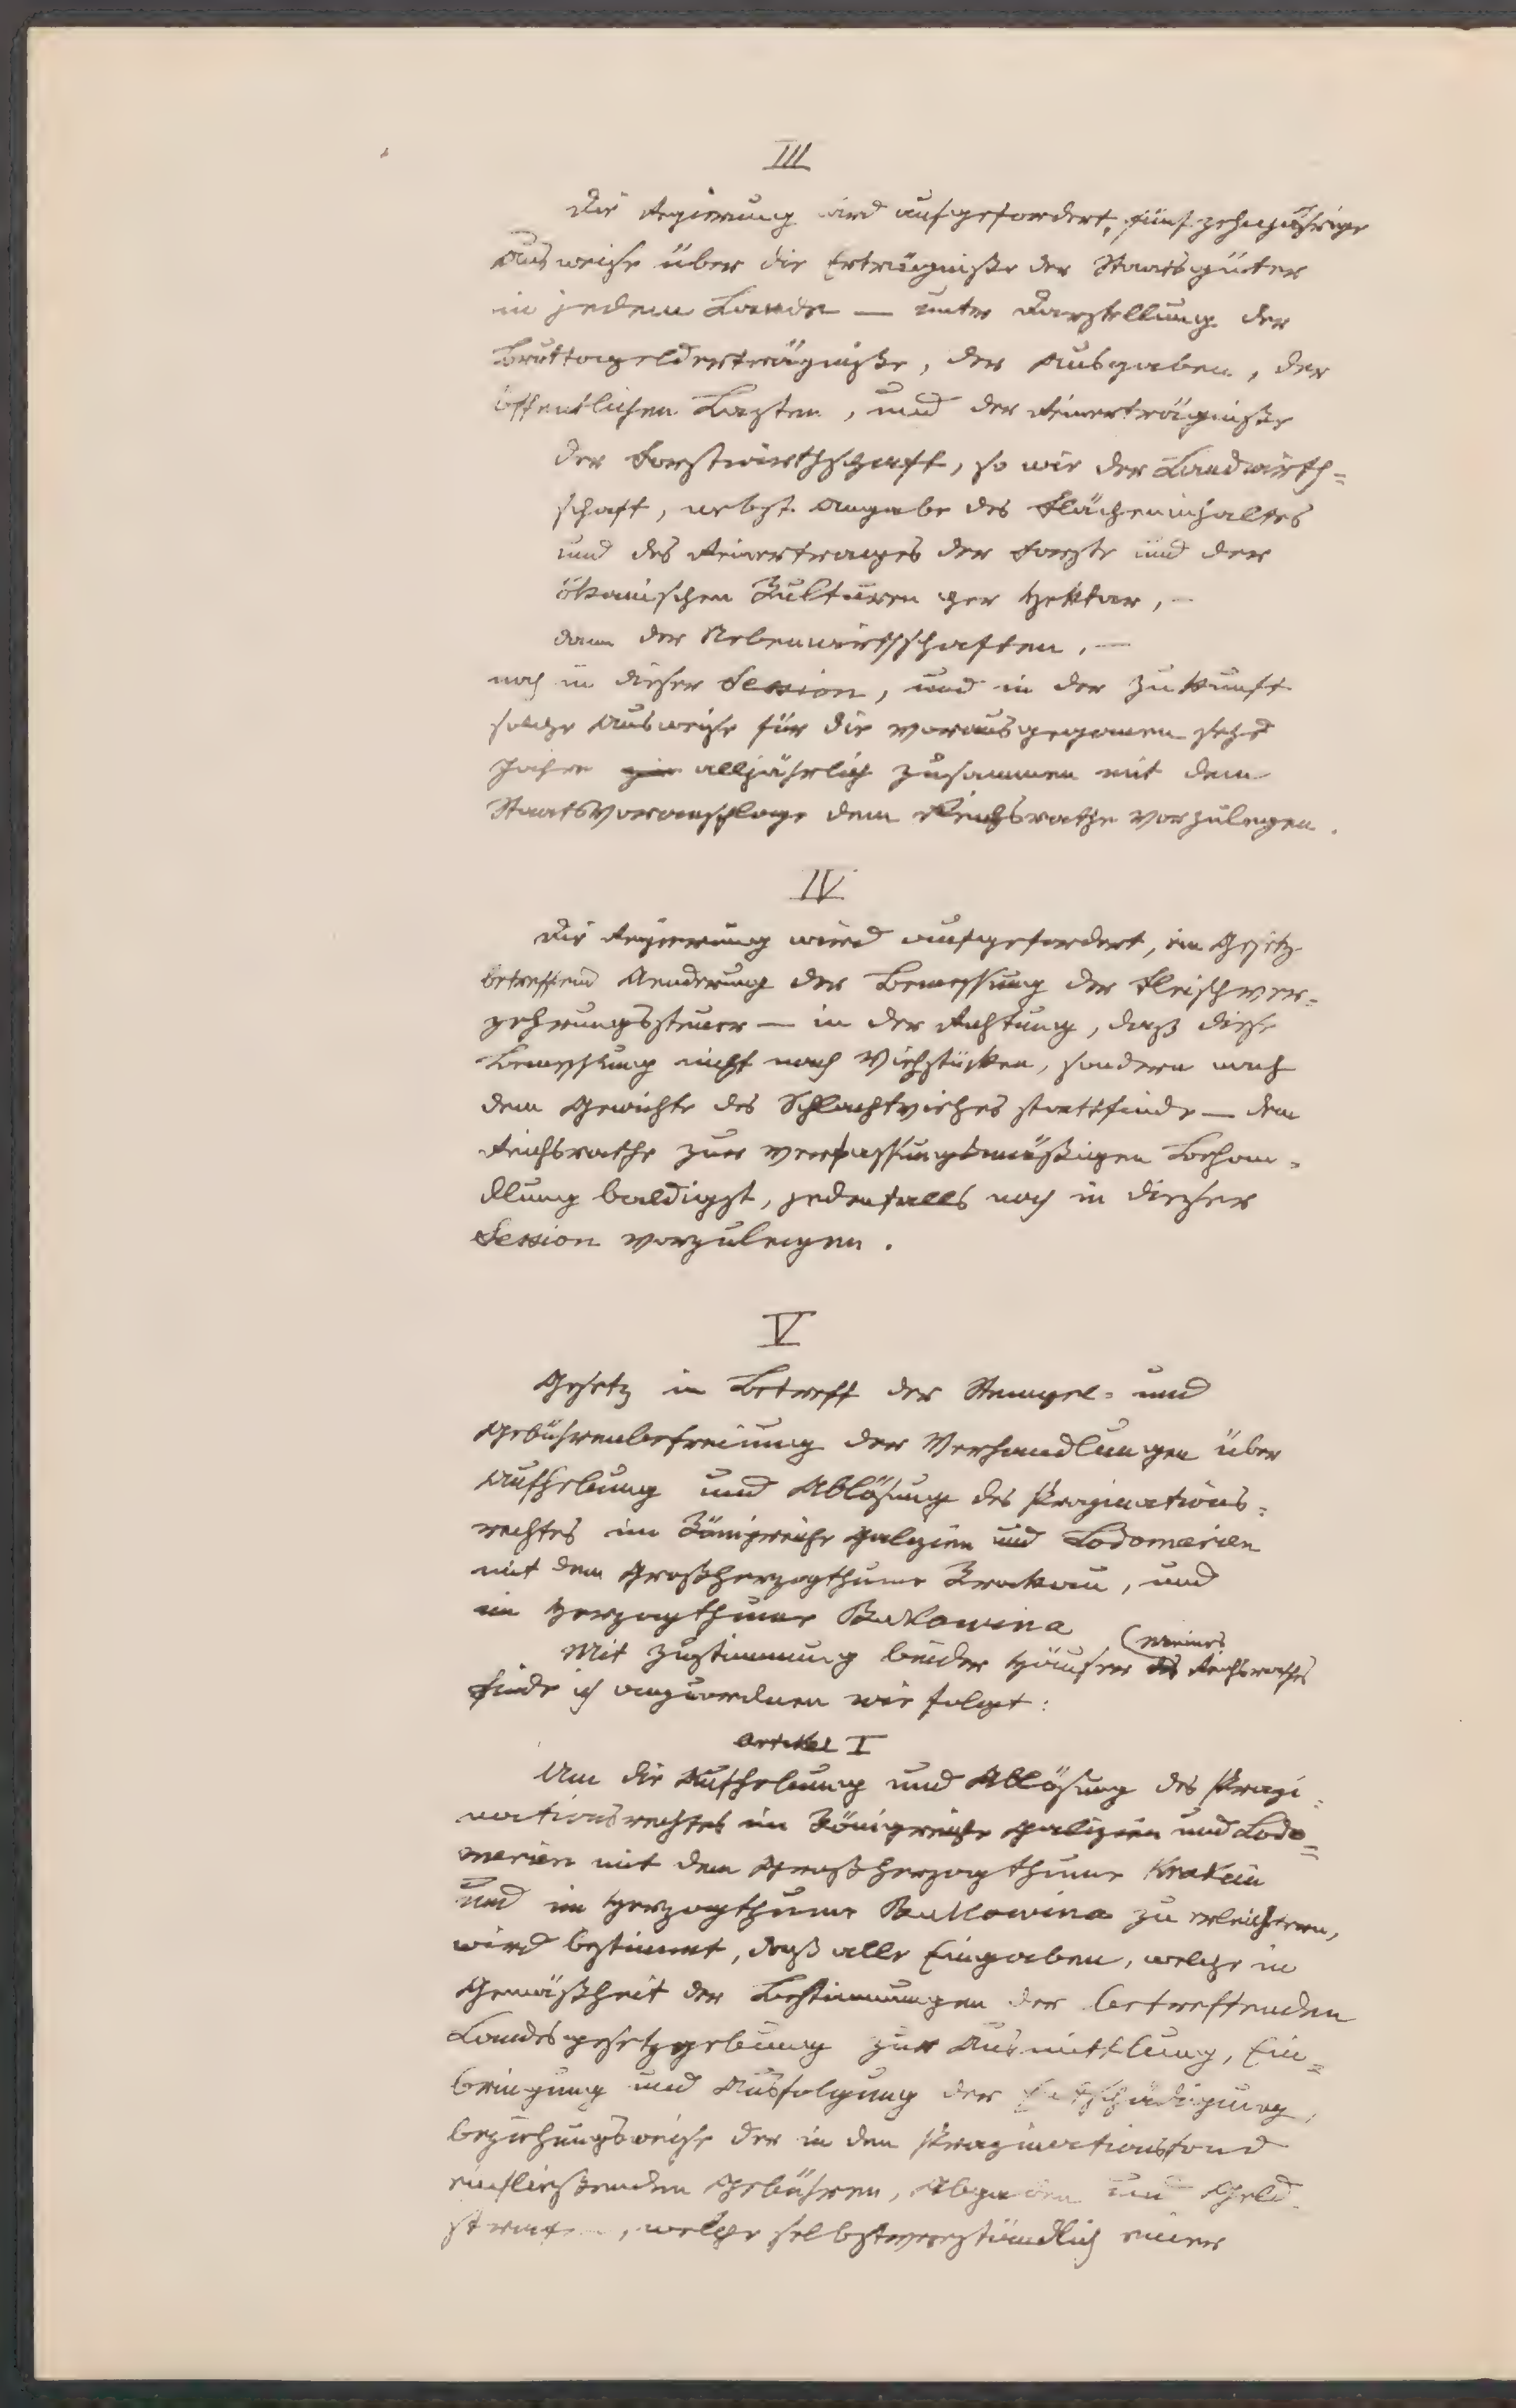 III
Die Regierung wird aufgefordert, fünfzehnjährige
Ausweise über die Erträgniße der Staatsgüter
in jedem Lande — unter Darstellung der
Bruttogelderträgniße, der Ausgaben, der
öffentlichen Lasten, und der Reinerträgniße
der Forstwirthschaft, so wie der Landwirth=
schaft, nebst Angabe des Flächeninhaltes
und des Reinertrages der Forste und der
ökonischen Kulturen per Hektar, —
dann der Nebenwirthschaften, —
noch in dieser Session, und in der Zukunft
solche Ausweise für die vorausgegangenen sechs
Jahre alljährlich zusammen mit dem
Staatsvoranschlage dem Reichsrathe vorzulegen.
IV
Die Regierung wird aufgefordert, ein Gesetz
betreffend Aenderung der Bemessung der Fleischver=
zehrungssteuer — in der Richtung, daß diese
Bemessung nicht nach Viehstücken, sondern nach
dem Gewichte des Schlachtviehes stattfinde — dem
Reichsrathe zur verfassungsmäßigen Behan=
dlung baldigst, jedenfalls noch in dieser
Session vorzulegen.
V
Gesetz in Betreff der Stempel= und
Gebührenbefreiung der Verhandlungen über
Aufhebung und Ablösung des Propinations=
rechtes im Königreiche Galizien und Lodomerien
mit dem Großherzogthume Krakau, und
im Herzogthume Bukowina
(Meines
Mit Zustimmung beider Häuser des Reichsrathes
finde ich anzuordnen wie folgt:
Artikel I
Um die Aufhebung und Ablösung des Propi=
nationsrechtes im Königreiche Galizien und Lodo=
merien mit dem Großherzogthume Krakau
und im Herzogthume Bukowina zu erleichtern,
wird bestimmt, daß alle Eingaben, welche in
Gemäßheit der Bestimmungen der betreffenden
Landesgesetzgebung zur Ausmittlung, Ein=
bringung und Ausfolgung der Entschädigung,
beziehungsweise der in den Propinationsfond
einfließenden Gebühren, Abgaben und Geld
strafen, welche selbstverständlich einer